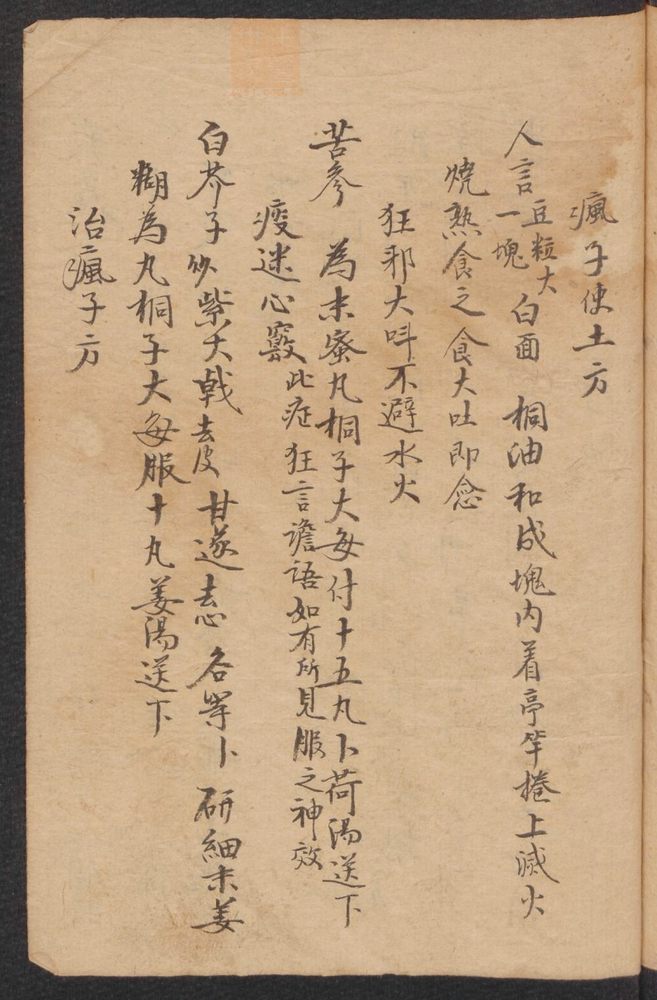 瘋子使土方
人言豆粒大一塊 白面 桐油和成塊内着亭竿捲上滅火
燒熟食之食大吐即愈
狂邪大呌不避水火
苦參 為末蜜丸桐子大每付十五丸卜荷湯送下
痰迷心竅此症狂言譫語如有所見服之神效
白芥子炒紫大戟去皮甘遂去心各等卜 研細末姜
糊為丸桐子大每服十丸姜湯送下
治瘋子方